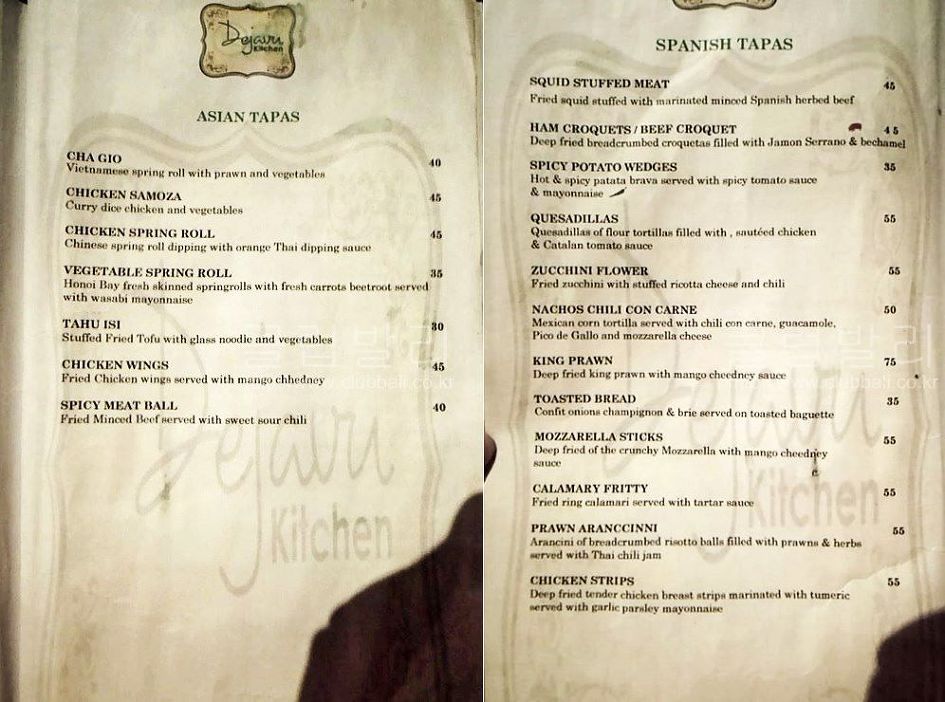 Dejavu
Kitchen
ASIAN TAPAS
CHA GIO 40
Vietnamese spring roll with prawn and vegetables
CHICKEN SAMOZA 45
Curry dice chicken and vegetables
CHICKEN SPRING ROLL 45
Chinese spring roll dipping with orange Thai dipping sauce
VEGETABLE SPRING ROLL 35
Honoi Bay fresh skinned springrolls with fresh carrots beetroot served
with wasabi mayonnaise
TAHU ISI 30
Stuffed Fried Tofu with glass noodle and vegetables
CHICKEN WINGS 45
Fried Chicken wings served with mango chhedney
SPICY MEAT BALL 40
Fried Minced Beef served with sweet sour chili
Dejavu
Kitchen
SPANISH TAPAS
SQUID STUFFED MEAT 45
Fried squid stuffed with marinated minced Spanish herbed beef
HAM CROQUETS / BEEF CROQUET 45
Deep fried breadcrumbed croquetas filled with Jamon Serrano & bechamel
SPICY POTATO WEDGES 35
Hot & spicy patata brava served with spicy tomato sauce
& mayonnaise
QUESADILLAS 55
Quesadillas of flour tortillas filled with , sautéed chicken
& Catalan tomato sauce
ZUCCHINI FLOWER 55
Fried zucchini with stuffed ricotta cheese and chili
NACHOS CHILI CON CARNE 50
Mexican corn tortilla served with chili con carne, guacamole,
Pico de Gallo and mozzarella cheese
KING PRAWN 75
Deep fried king prawn with mango cheedney sauce
TOASTED BREAD 35
Confit onions champignon & brie served on toasted baguette
MOZZARELLA STICKS 55
Deep fried of the crunchy Mozzarella with mango cheedney
sauce
CALAMARY FRITTY 55
Fried ring calamari served with tartar sauce
PRAWN ARANCCINNI 55
Arancini of breadcrumbed risotto balls filled with prawns & herbs
served with Thai chili jam
CHICKEN STRIPS 55
Deep fried tender chicken breast strips marinated with tumeric
served with garlic parsley mayonnaise
Kitchen